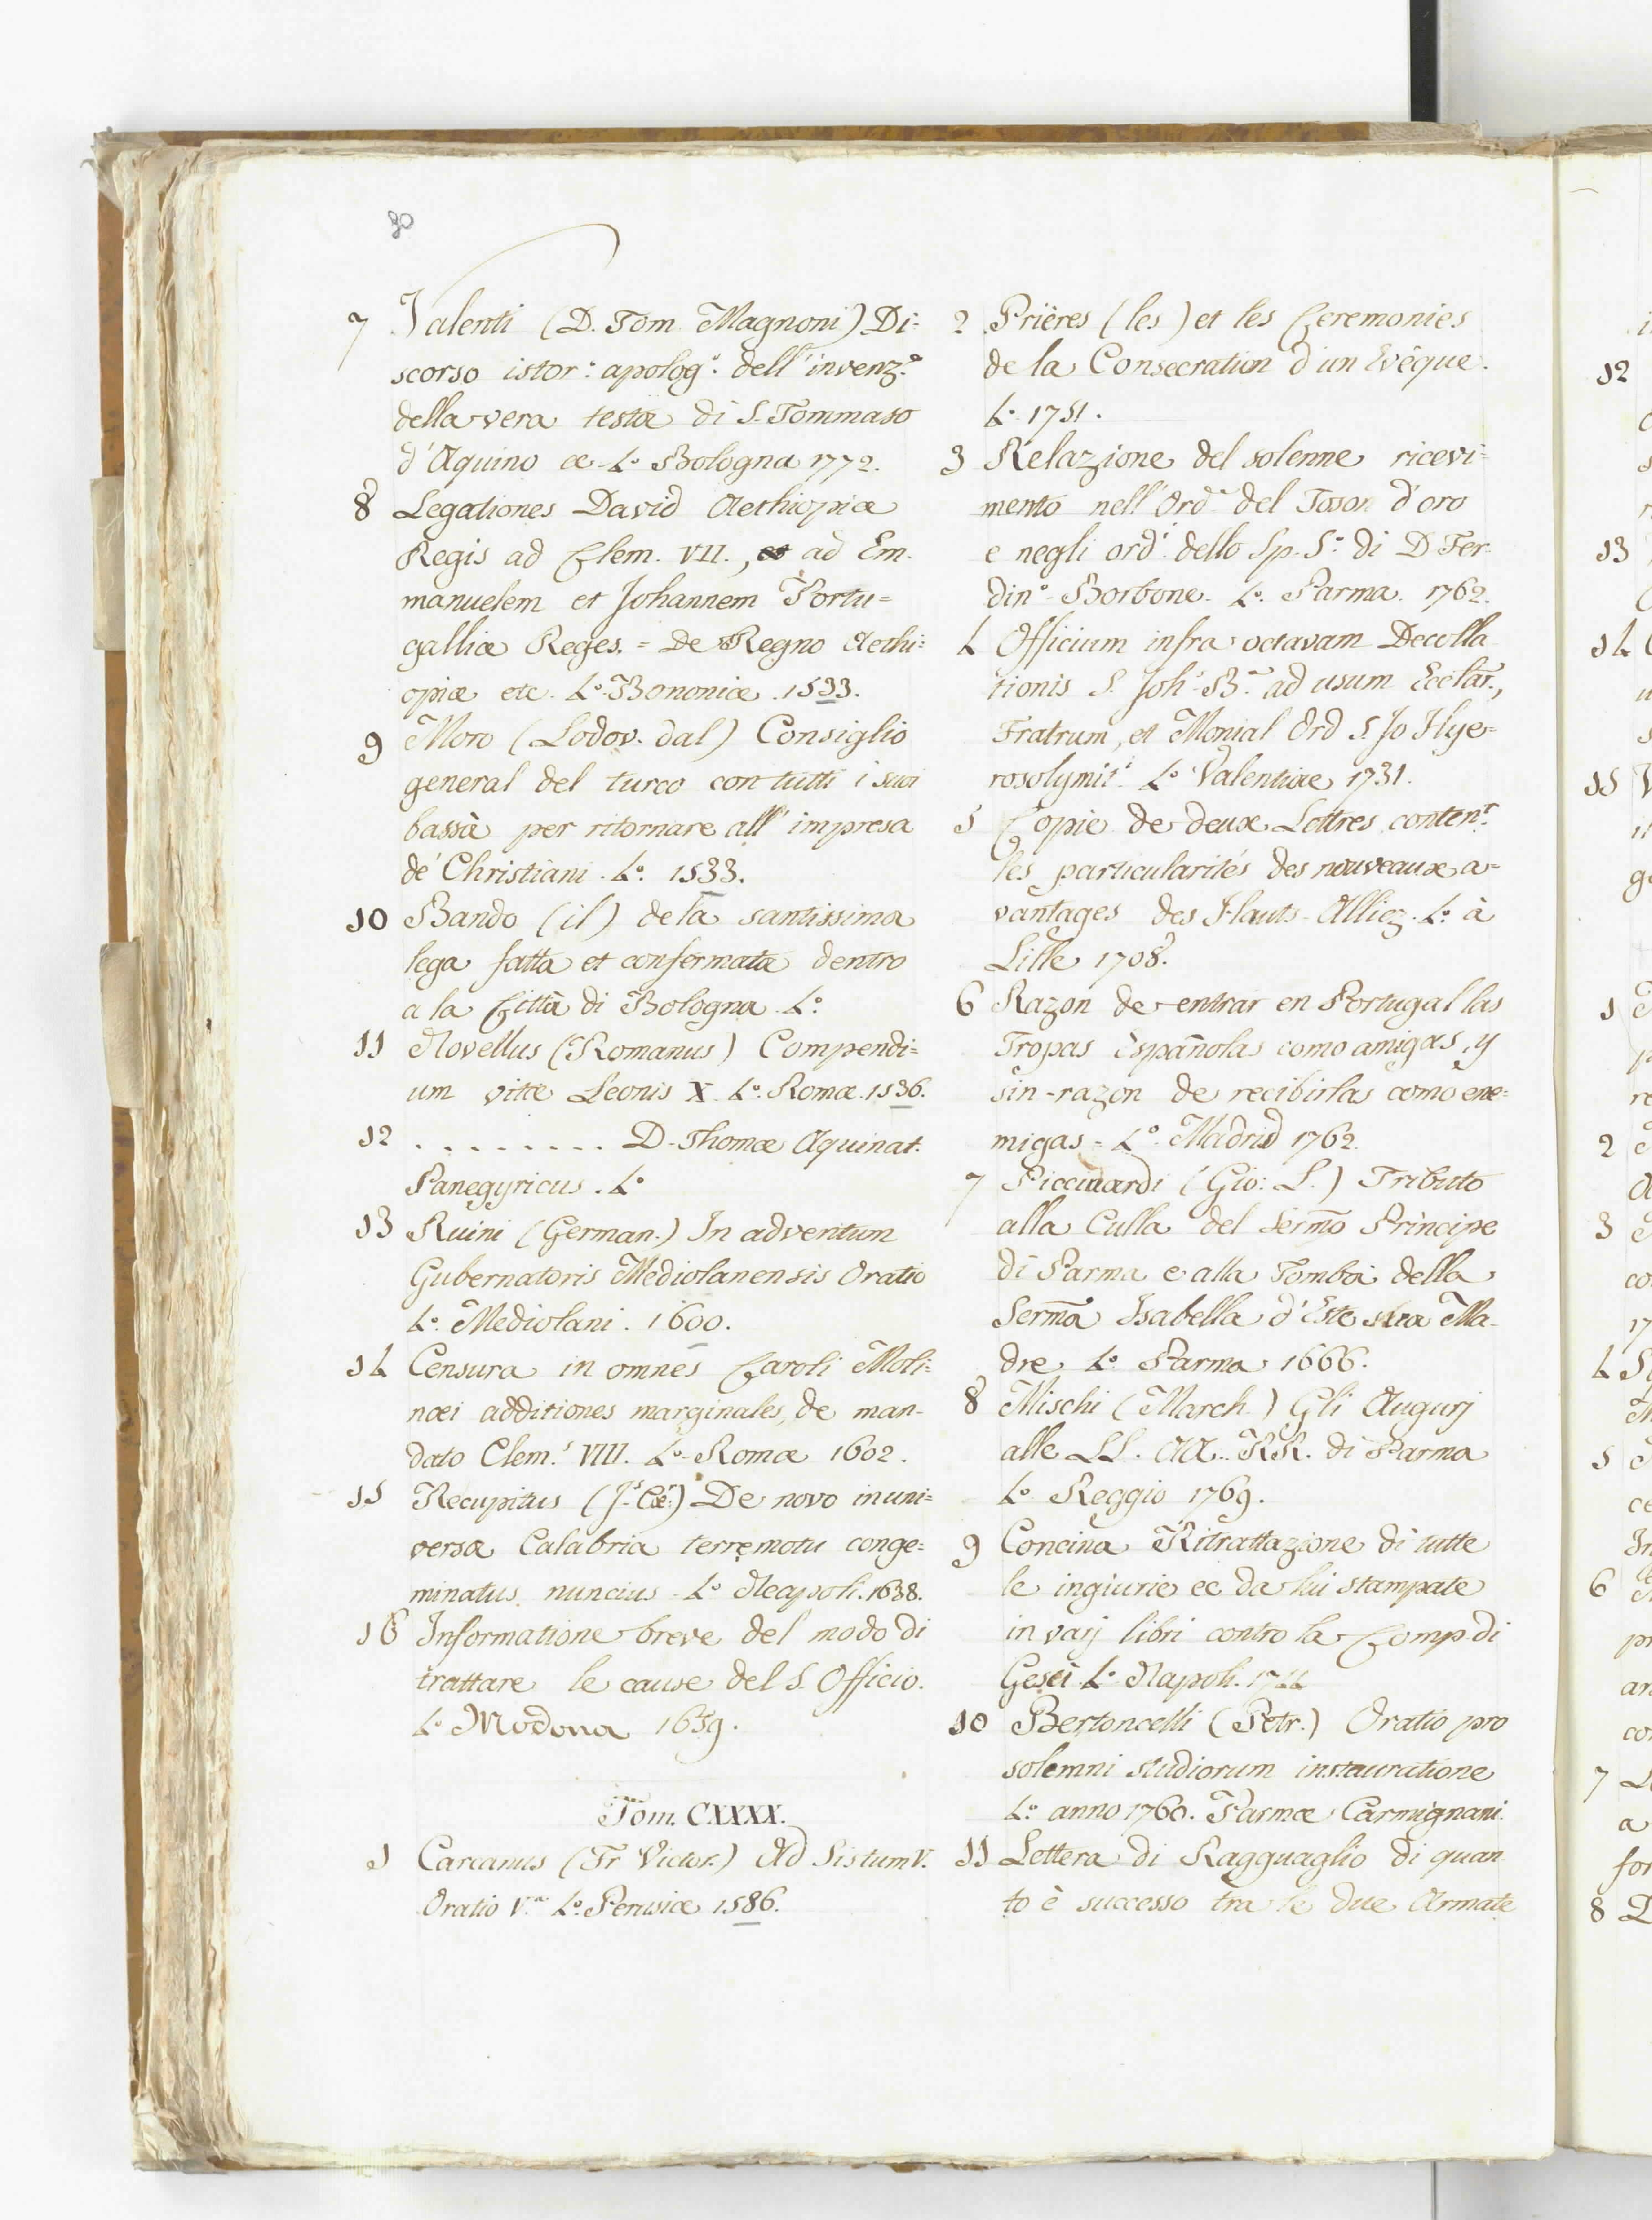 80
7 Valenti (D. Tom Magnoni) Di=
scorso istor.º apolog.º dell' invenz.e
della vera testa di S. Tommaso
d' Aquino ec 4.º Bologna 1772.
8 Legationes David Aethiopiæ
Regis ad Clem. VII., ad Em-
manuelem et Johannem Portu=
galliæ Reges. = De Regno Aethi=
opiæ etc. 4.º Bononiæ 1533.
9 Moro (Lodov. dal) Consiglio
general del turco con tutti i suoi
bassà per ritornare all' impresa
de' Christiani. 4.º 1533.
10 Bando (il) de la santissima
lega fatta et confermata dentro
a la Città di Bologna 4.º
11 Novellus (Romanus) Compendi=
um vitæ Leonis X. 4.º Romæ. 1536.
12 . . . . . . . . D. Thomæ Aquinat.
Panegyricus. 4.º
13 Ruini (German.) In adventum
Gubernatoris Mediolanensis Oratio
4.º Mediolani. 1600.
14 Censura in omnes Caroli Moli=
næi additiones marginales, de man-
dato Clem.s VIII. 4.º Romæ 1602.
15 Recupitus (J.s Cæ.) De novo in uni=
versa Calabria terremotu conge=
minatus nuncius 4.º Neapoli. 1638.
16 Informatione breve del modo di
trattare le cause del S. Officio.
4.º Modona 1659.
Tom. CXXXX.
1 Carcanus (Fr Victor.) Ad Sistum V.
Oratio V.a 4.º Perusiæ 1586.
2 Prières (les) et les Ceremonies
de la Consecration d'un Evêque.
4.º 1751.
3 Relazione del solenne ricevi=
mento nell' Ord.e del Toson d'oro
e negli ord.i dello Sp. S.º di D Fer-
din.º Borbone. 4.º Parma. 1762.
4 Officium infra octavam Decolla
tionis S. Joh.s B.æ ad usum Ecclar.,
Fratrum, et Monial Ord S. Jo Hye=
rosolymit.i 4.º Valentiæ 1731.
5 Copie de deux Lettres conten.t
les particularités des nouveaux a=
vantages des Hauts-Alliez. 4.º à
Lille 1708.
6 Razon de entrar en Portugal las
Tropas Españolas como amigas, y
sin-razon de recibirlas como ene=
migas = 4.º Madrid 1762.
7 Picciuardi (Gio: L.) Tributo
alla Culla del Sermo Principe
di Parma e alla Tomba della
Serma Isabella d'Este sua Ma-
dre 4.º Parma 1666.
8 Mischi (March.) Gli Augurj
alle LL. AA. RR. di Parma
4.º Reggio 1769.
9 Concina Ritrattazione di tutte
le ingiurie ec da lui stampate
in varj libri contro la Comp. di
Gesù 4.º Napoli. 1744
10 Bertoncelli (Petr.) Oratio pro
solemni studiorum instauratione
4.º anno 1760. Parmæ Carmignani.
11 Lettera di Ragguaglio di quan
to è successo tra le due Armate
12
13
14
15
1
2
3
4
5
6
7
8